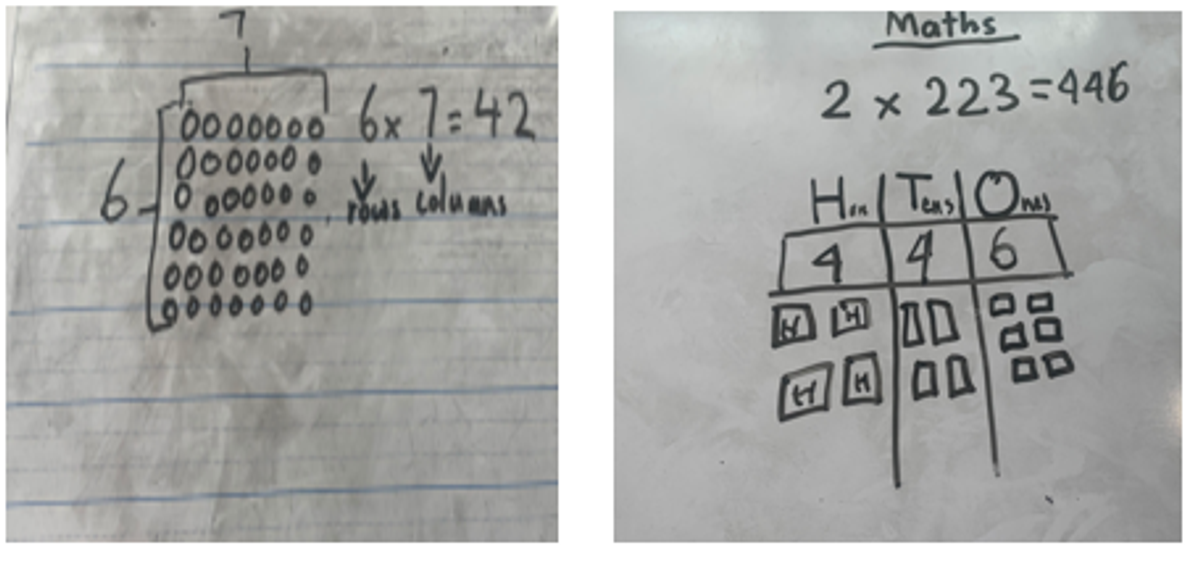 7
6 x 7 = 42
6
rows columns
Maths
2 x 223 = 446
Hun Tens Ones
4 4 6
H H
H H